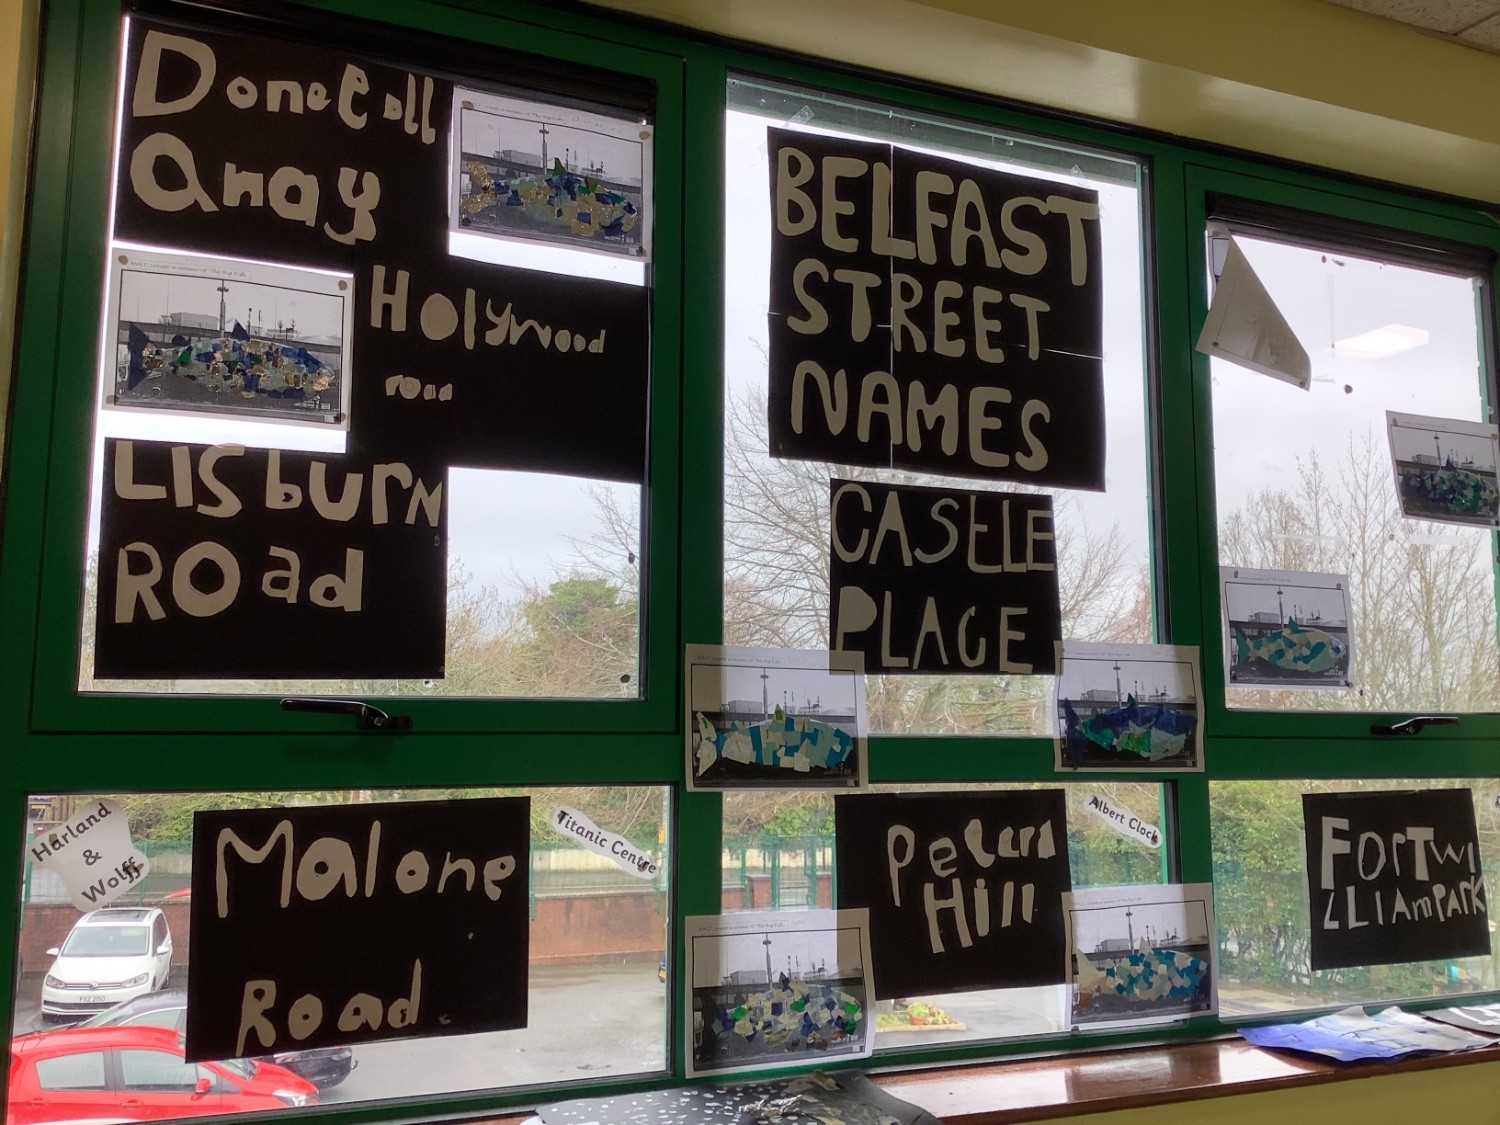 Donegall
Quay
Holywood
road
Lisburn
Road
BELFAST
STREET
NAMES
CAStLE
PLACE
Harland
&
Wolff
Malone
Road
Titanic Centre
Peters
Hill
Albert Clock
FOrTWi
LLiAmPArK